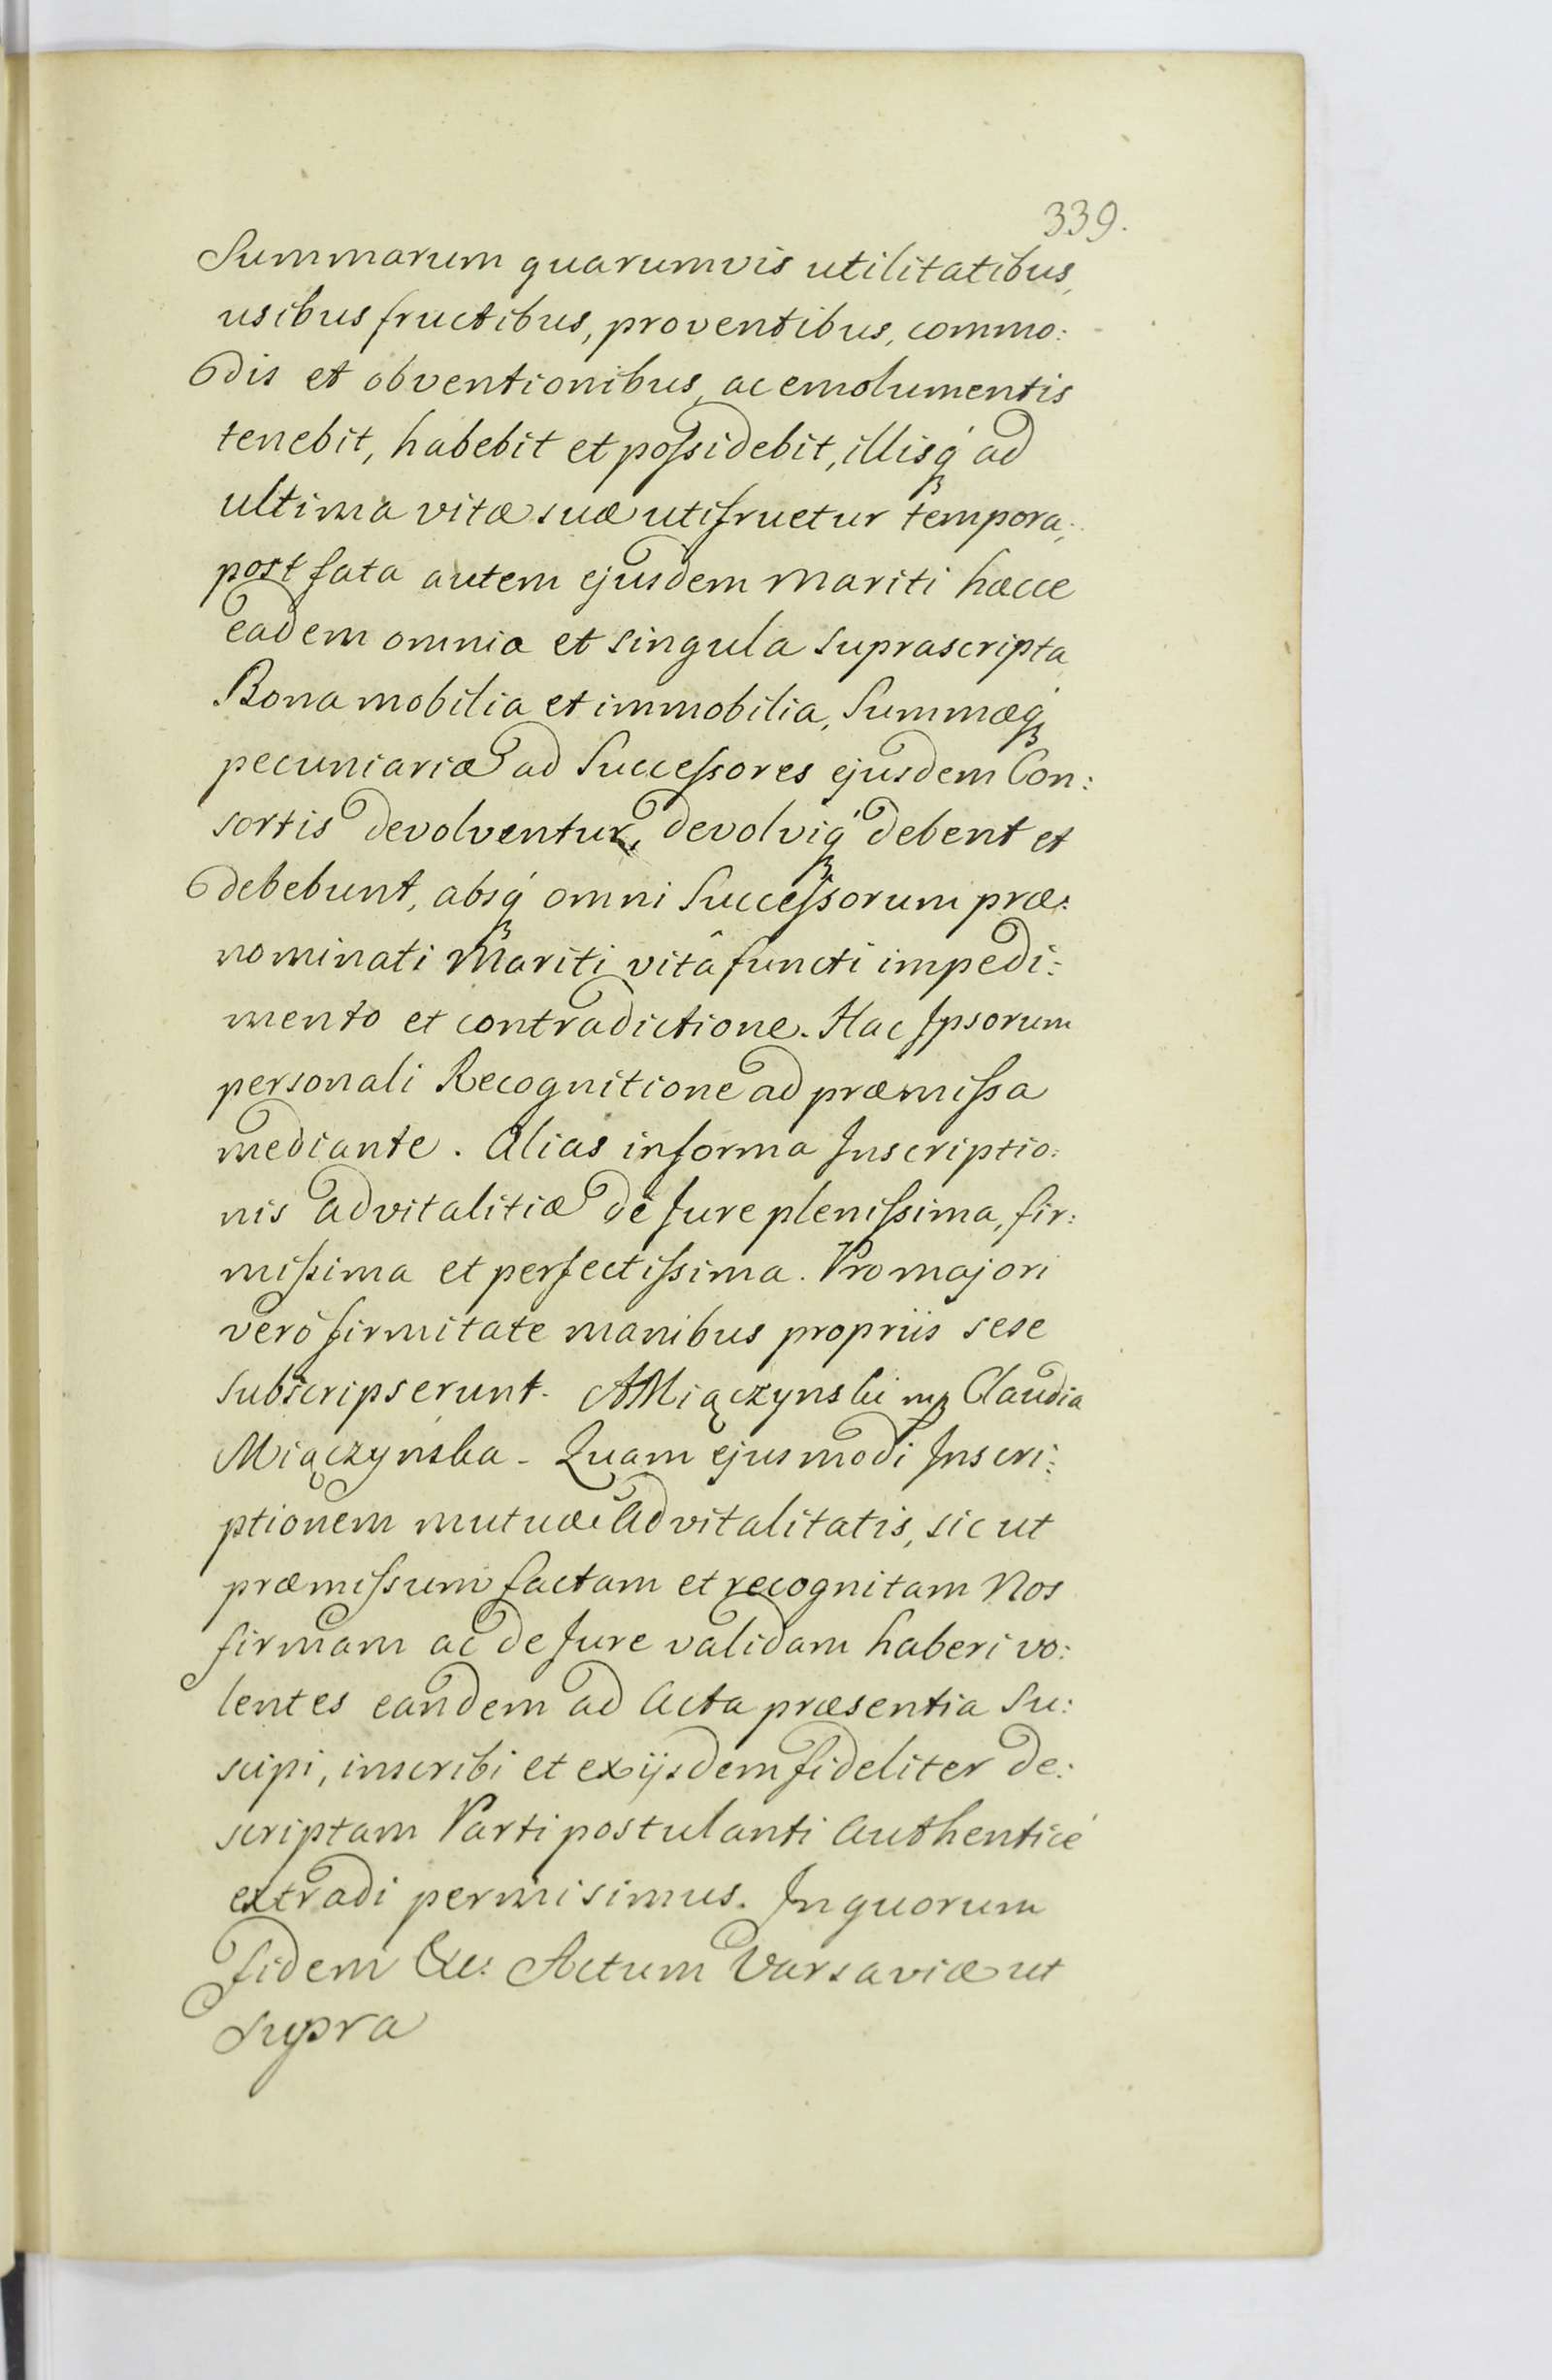 339.
Summarum quarumvis utilitatibus,
usibus fructibus, proventibus, commo:
dis et obventionibus, ac emolumentis
tenebit, habebit et possidebit, illisq́ ad
ultima vitæ suæ utifruetur tempora,
post fata autem ejusdem Mariti hæcce
eadem omnia et singula suprascripta
Bona mobilia et immobilia, Summæq́
pecuniariæ ad Successores ejusdem Con:
sortis devolventur, devolviq́ debent et
debebunt, absq́ omni Successorum præ:
nominati Mariti vitâ functi impedi:
mento et contradictione. Hac Ipsorum
personali Recognitione ad præmissa
mediante. Alias in forma Inscriptio:
nis advitalitiæ de Jure plenissima, fir:
missima et perfectissima. Pro majori
verò firmitate manibus propriis sese
subscripserunt. AMiączynski mp Claudia
Miączyńska - Quam ejusmodi Inscri:
ptionem mutuæ Advitalitatis, sic ut
præmissum factam et recognitam Nos
firmam ac de Jure validam haberi vo:
lentes eandem ad Acta præsentia Su:
scipi, inscribi et ex ijsdem fideliter de:
scriptam Parti postulanti authenticé
extradi permisimus. In quorum
fidem &c: Actum Varsaviæ ut
supra